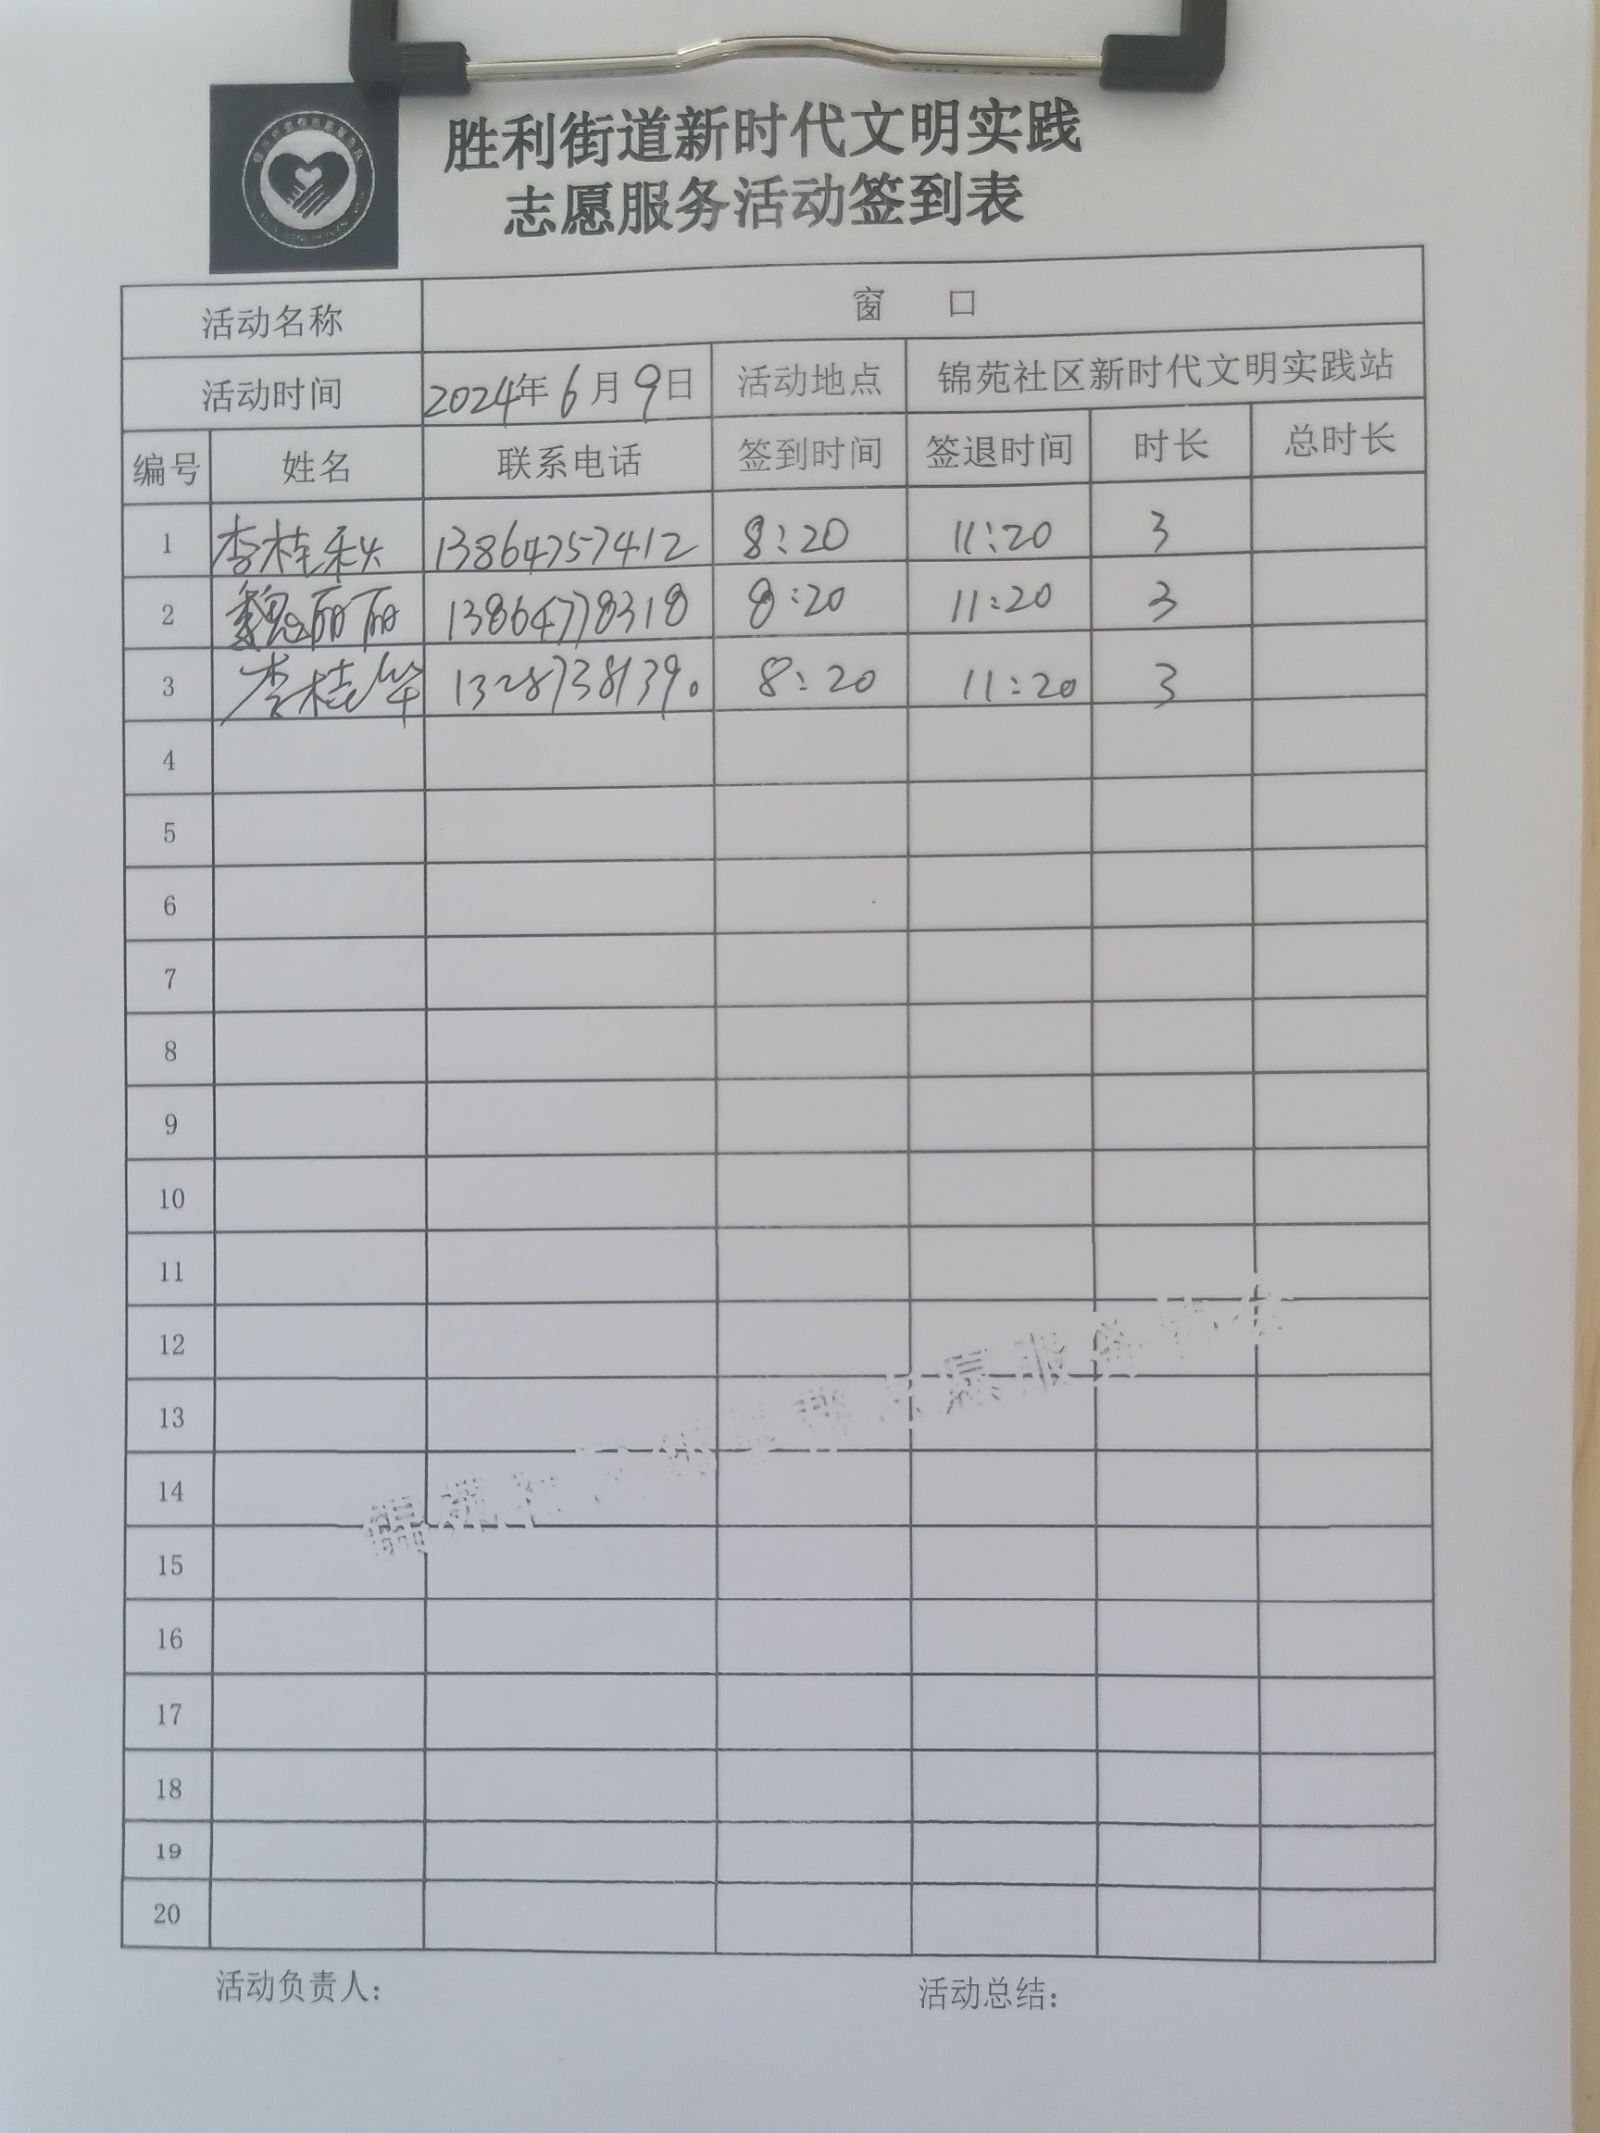 胜利街道新时代文明实践
志愿服务活动签到表
活动名称 窗 口
活动时间 2024年6月9日 活动地点 锦苑社区新时代文明实践站
编号 姓名 联系电话 签到时间 签退时间 时长 总时长
1 李桂秋 13864757412 8:20 11:20 3
2 魏丽丽 13864778318 8:20 11:20 3
3 李桂华 13287381390 8:20 11:20 3
4
5
6
7
8
9
10
11
12
13
14
15
16
17
18
19
20
活动负责人: 活动总结: